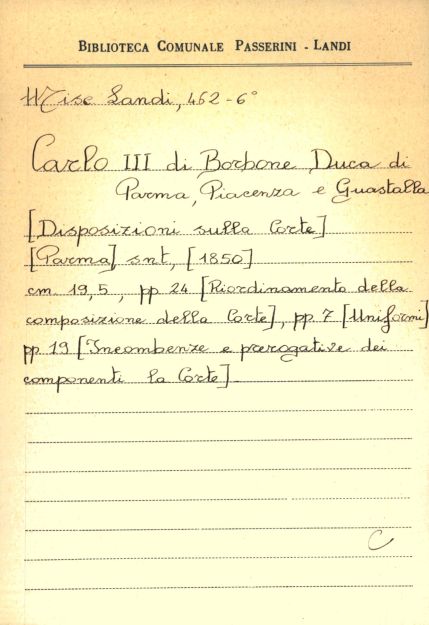 BIBLIOTECA COMUNALE PASSERINI - LANDI
Misc Landi, 462-6°
Carlo III di Borbone Duca di
Parma, Piacenza e Guastalla
[Disposizioni sulla Corte]
[Parma] snt, [1850]
cm. 19,5, pp. 24 [Riordinamento della
composizione della Corte], pp. 7 [Uniformi]
pp. 19 [Incombenze e prerogative dei
componenti la Corte]
C